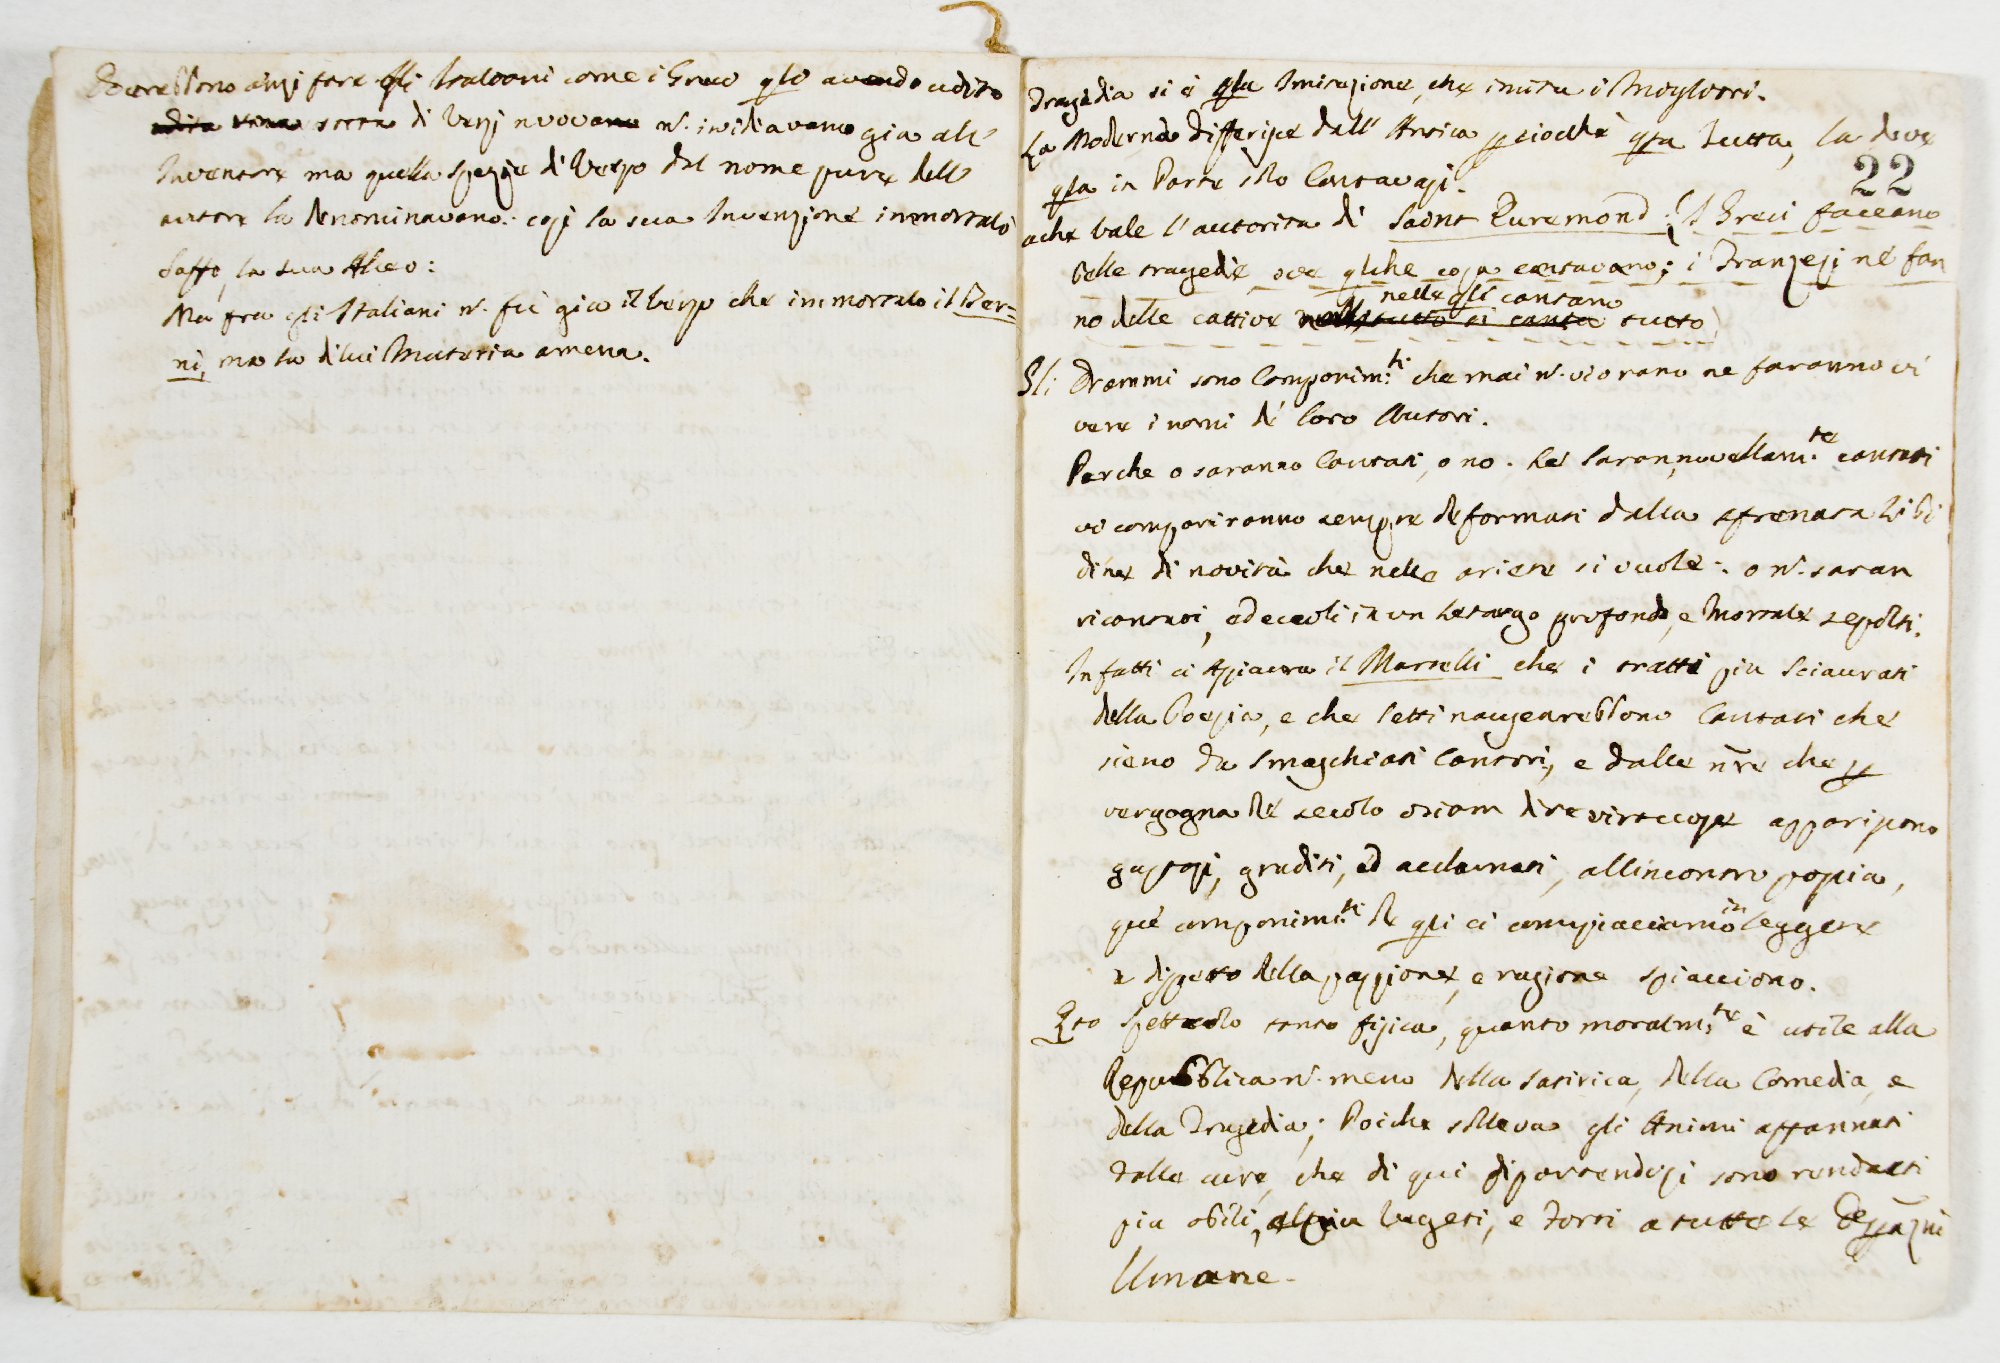 Doverebbono anzi fare gli Italiani come i Greci qli avendo udito
udita una sorta di Versi nuovane n. invidiavano gia all'
Inventore, ma quella spezie di Verso dal nome pure dell'
autore la denominavano: così la sua Invenzione immortalò
Saffo, la sua Alceo:
Ma fra gli Italiani n. fù gia il verso che immortalò il Ber=
ni, ma la di lui Materia amena.
Tragedia si è qlla Imitazione, che imita i Migliori.
La Moderna differisce dall' Antica p cioche qsta tutta, la dove
22
qlla in Parte solo Cantavasi.
ache vale l'autorita di Saint Euremond: (I Greci faceano
belle tragedie, ove qlche cosa cantavano; i Franzesi ne fan
nelle qli cantano
no delle cattive nelle tutto si canta tutto)
Gli Drammi sono Componim.ti che mai n. viverano ne faranno vi
vere i nomi de loro Autori.
Perche o saranno Cantati, o no. Se saran novellam.te cantati
vi compariranno sempre deformati dalla sfrenata libi
dine di novità che nelle ariette si vuole: o n. saran
ricantati, ed eccoli in un letargo profondo, e Mortale sepolti.
In fatti ci spiaceva il Martelli che i tratti piu sciaurati
della Poesia, e che letti nauseurebbono Cantati che
sieno da smaschiati Cantori, e dalle nre che p
vergogna del secolo osiam dire virtuose appariscono
gustosi, graditi, ed acclamati, allincontro poscia,
que' componim.ti de qli ci compiacciamo in leggere
a dispetto della passione, e ragione spiacciono.
Qto spettacolo tanto fisica, quanto moralm.te è utile alla
Republica n. meno della Satirica, della Comedia, e
della Tragedia; Poiche solleva gli Animi affannati
dalle cure, che di qui dipartendosi sono rendutti
piu abili, vegeti, e forti a tutte le
Umane.